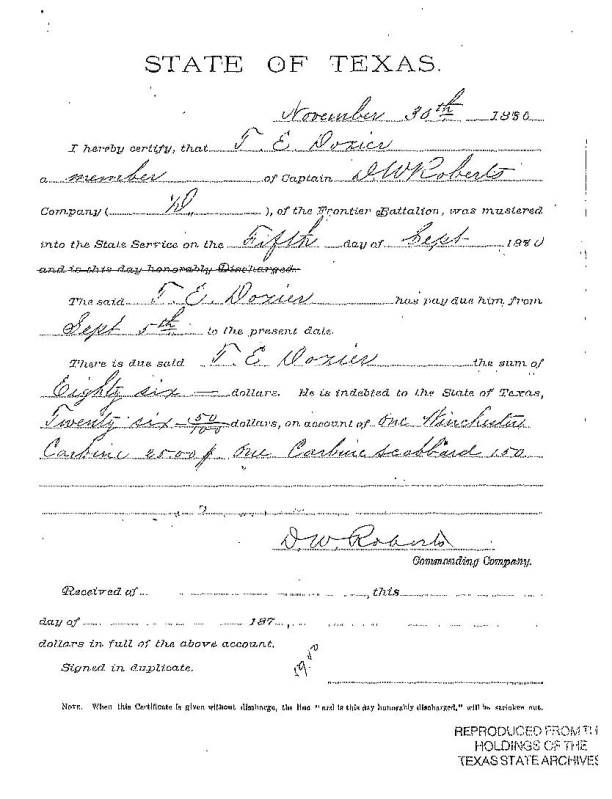 STATE OF TEXAS.
November 30th 1880
I hereby certify, that T. E. Dozier
a member of Captain D W Roberts
Company ( D, ), of the Frontier Battalion, was mustered
into the State Service on the Fifth day of Sept 1880
and is this day honorably Discharged.
The said T. E. Dozier has pay due him from
Sept 5th to the present date.
There is due said T. E Dozier the sum of
Eighty six — dollars. He is indebted to the State of Texas,
Twenty six 50/100 dollars, on account of One Winchester
Carbine One Carbine scabbard 150
D. W. Roberts
Commanding Company.
Received of , this
day of 187 ,
dollars in full of the above account.
Signed in duplicate.
NOTE. When this Certificate is given without discharge, the line "and is this day honorably discharged," will be stricken out.
REPRODUCED FROM TH
HOLDINGS OF THE
TEXAS STATE ARCHIVES